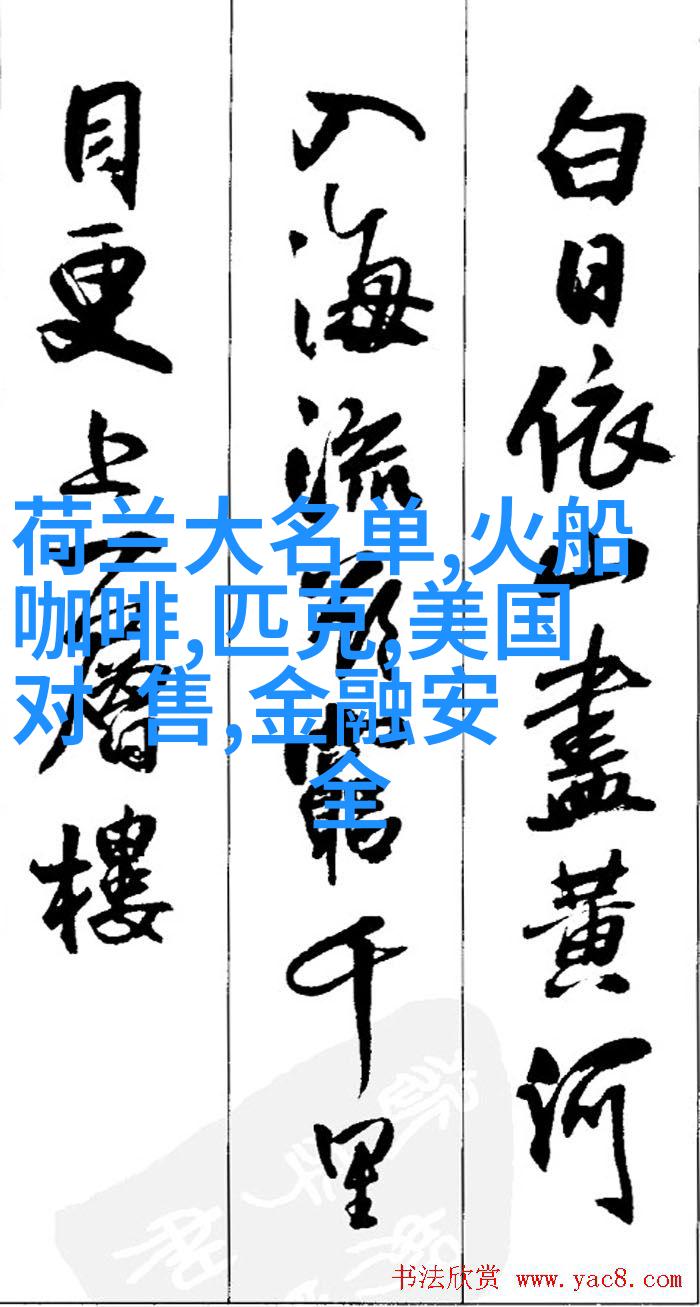 白日依山盡黃河
入海流欲窮千里
目更上一層樓
荷兰大名单,火船
咖啡,匹克,美国
对 售,金融安
全
书法欣赏 www.yac8.com